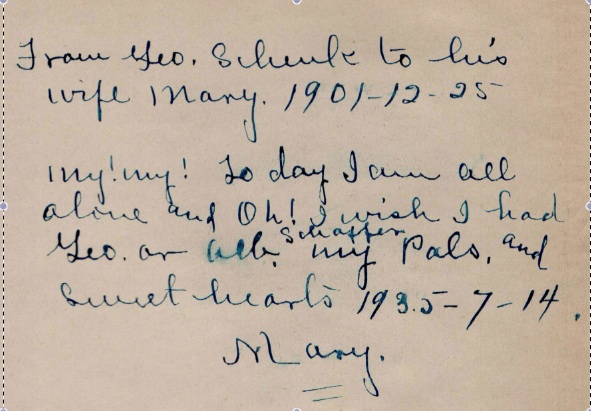 From Geo. Schenk to his
wife Mary. 1901-12-25
my! my! To day I am all
alone and Oh! I wish I had
Schaffer
Geo. or Alb. my Pals, and
Sweet hearts 1935-7-14.
Mary.